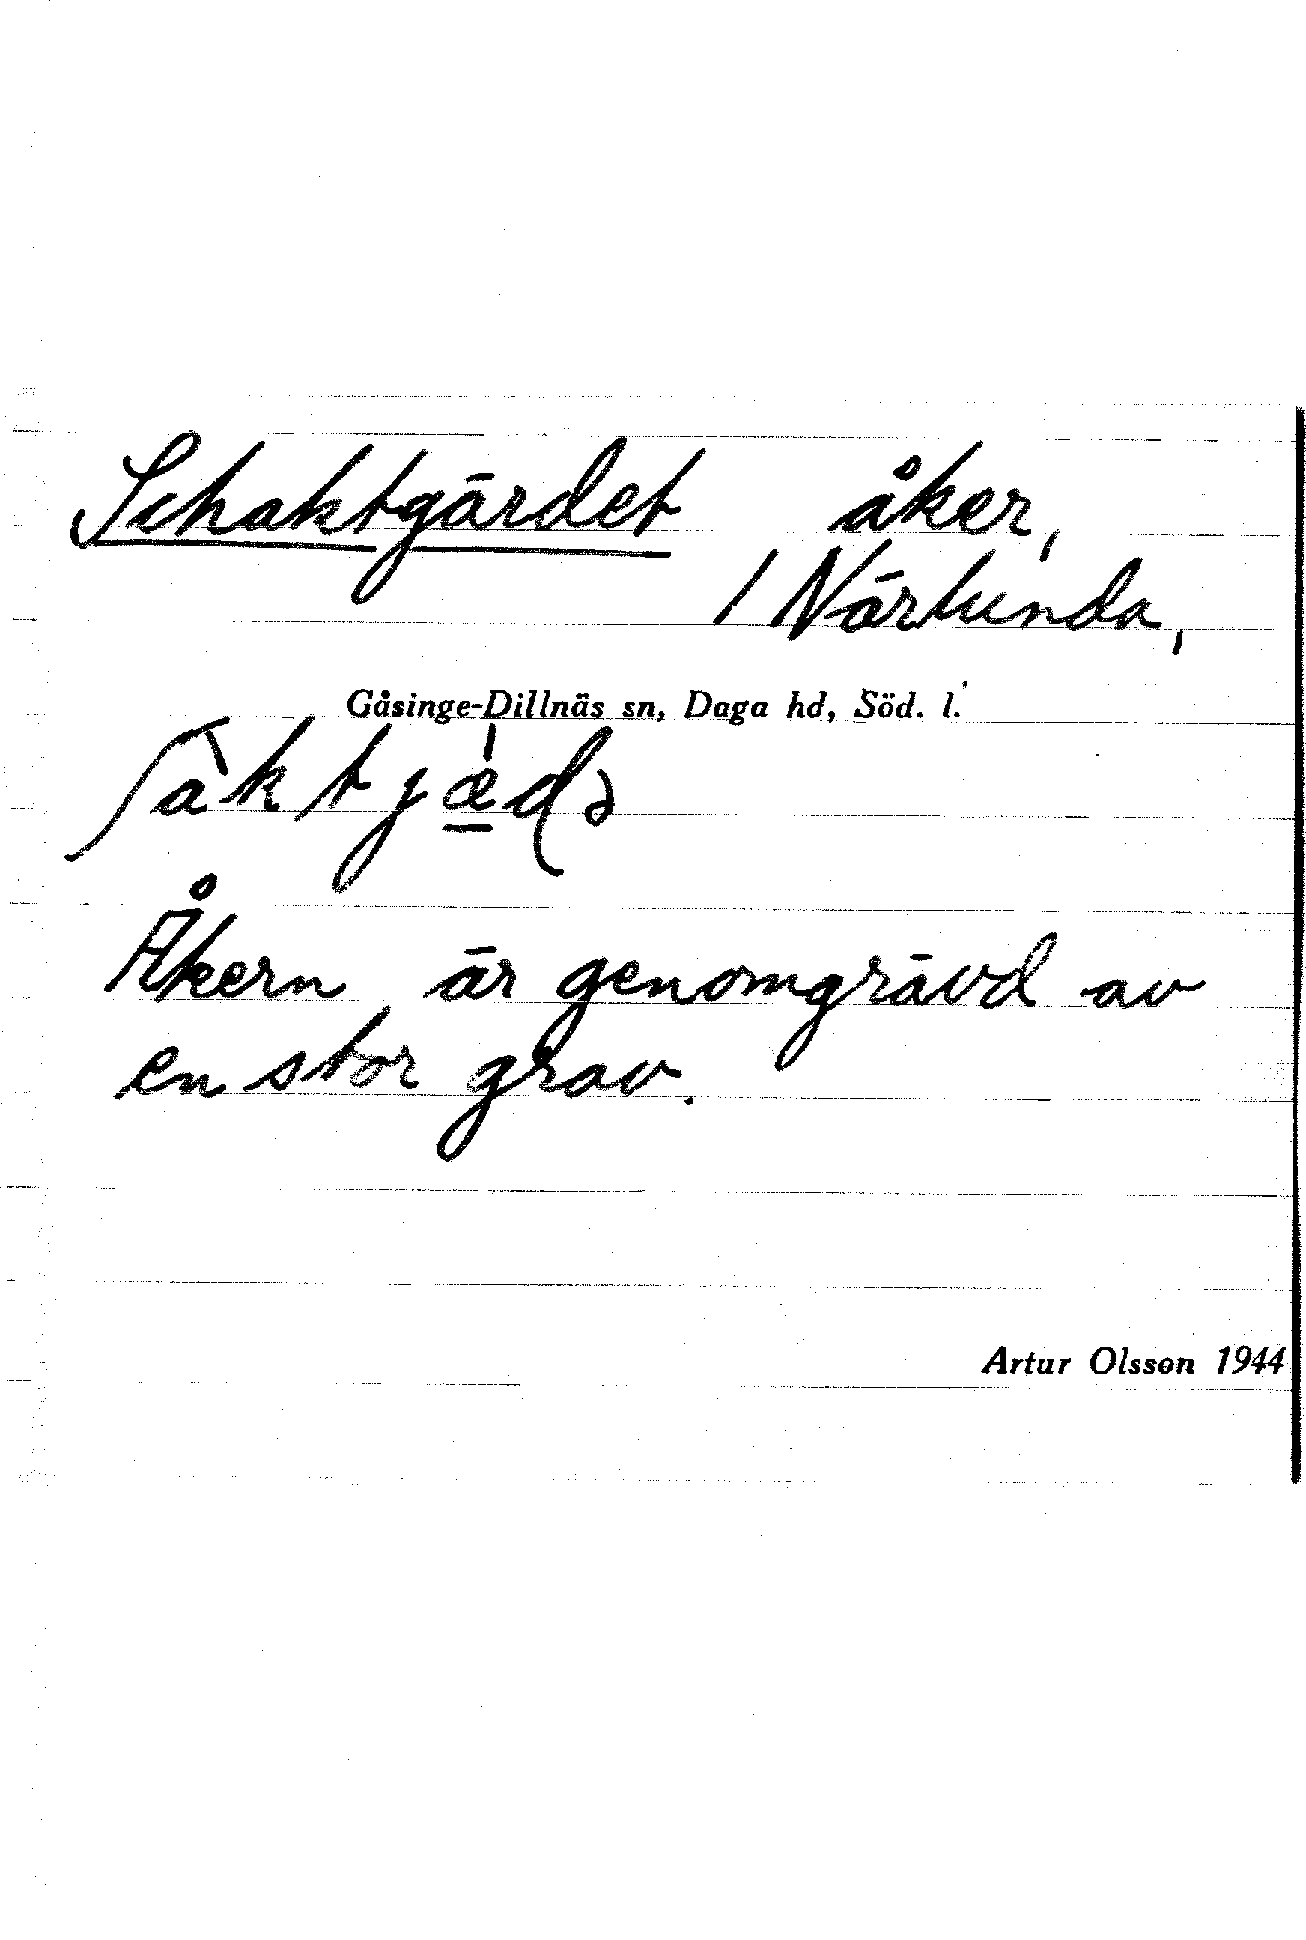 Schaktgärdet åker,
/ Närlunda,
Gåsinge-Dillnäs sn, Daga hd, Söd. l.
ʃàktjǽ̱ɖə
Åkern är genomgrävd av
en stor grav.
Artur Olsson 1944